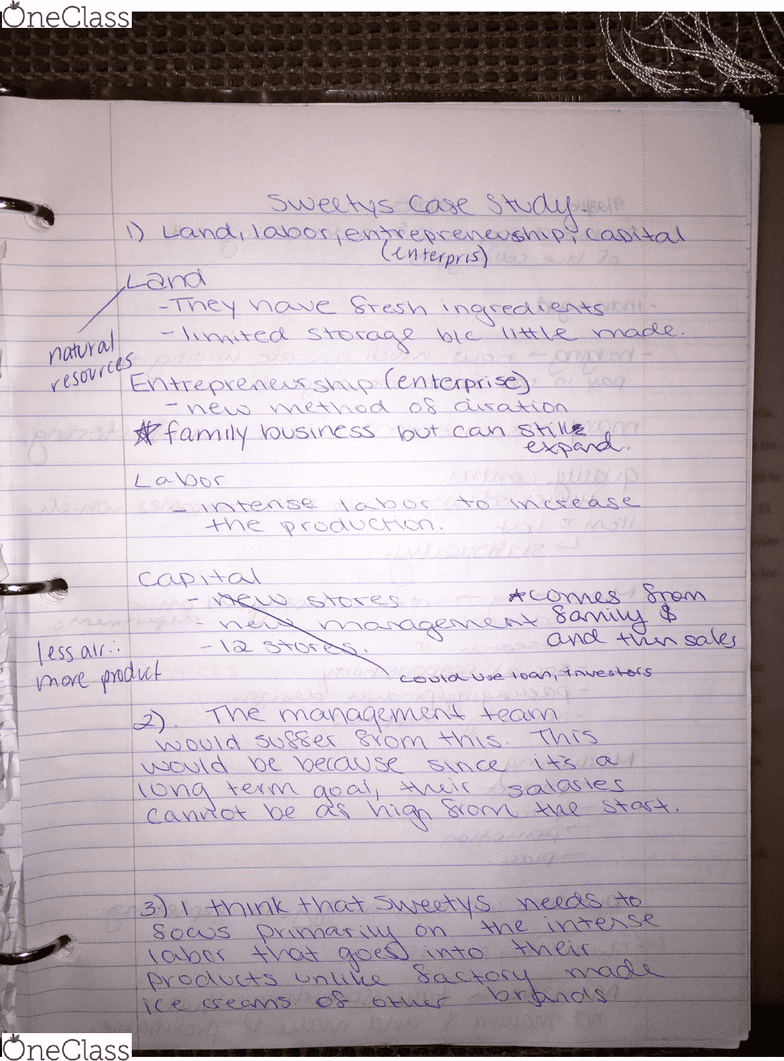 OneClass
Sweetys Case Study.
1) Land, labor, entrepreneurship, capital
(enterpris)
Land
- They have fresh ingredients
- limited storage b/c little made.
natural
resources
Entrepreneurship (enterprise)
- new method of airation
* family business but can still
expand.
Labor
- intense labor to increase
the production.
Capital
- new stores
new management
- 12 stores.
*comes from
family $
and then sales
could use loan, investors
less air ∴
more product
2). The management team
would suffer from this. This
would be because since it's a
long term goal, their salaries
cannot be as high from the start.
3.) I think that sweetys needs to
focus primarily on the intense
labor that goes into their
products unlike factory made
ice creams of other brands
OneClass